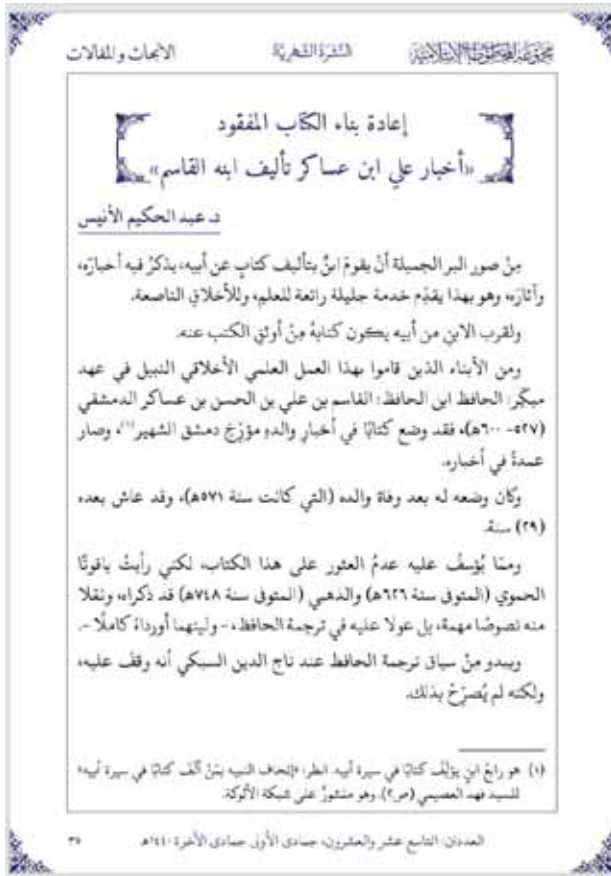 مجموعة المخطوطات الإسلامية
النشرة الشهرية
الأبحاث والمقالات
إعادة بناء الكتاب المفقود
«أخبار علي ابن عساكر تأليف ابنه القاسم»
د. عبد الحكيم الأنيس
مِنْ صور البر الجميلة أنْ يقومَ ابنٌ بتأليف كتابٍ عن أبيه، يذكرُ فيه أخبارَه،
وآثارَه، وهو بهذا يقدِّم خدمة جليلة رائعة للعلم، وللأخلاق الناصعة.
ولقرب الابن من أبيه يكون كتابهُ مِنْ أوثق الكتب عنه.
ومن الأبناء الذين قاموا بهذا العمل العلمي الأخلاقي النبيل في عهد
مبكِّر: الحافظ ابن الحافظ: القاسم بن علي بن الحسن بن عساكر الدمشقي
(٥٢٧- ٦٠٠هـ)، فقد وضع كتابًا في أخبار والدهِ مؤرِّخ دمشق الشهير(١)، وصار
عمدةً في أخباره.
وكان وضعه له بعد وفاة والده (التي كانت سنة ٥٧١هـ)، وقد عاش بعده
(٢٩) سنة.
وممّا يُؤسفُ عليه عدمُ العثور على هذا الكتاب، لكني رأيتُ ياقوتًا
الحموي (المتوفى سنة ٦٢٦هـ) والذهبي (المتوفى سنة ٧٤٨هـ) قد ذكراه، ونقلا
منه نصوصًا مهمة، بل عولا عليه في ترجمة الحافظ، - وليتهما أورداهُ كاملًا -.
ويبدو مِنْ سياق ترجمة الحافظ عند تاج الدين السبكي أنه وقفَ عليه،
ولكنه لم يُصرِّحْ بذلك.
(١) هو رابعُ ابنٍ يؤلِّف كتابًا في سيرة أبيه. انظر: «إتحاف النبيه بمَنْ ألف كتابًا في سيرة أبيه»
للسيد فهد العصيمي (ص٢). وهو منشورٌ على شبكة الألوكة.
العددان: التاسع عشر والعشرون، جمادى الأولى جمادى الآخرة ١٤٤٠هـ
٣٥